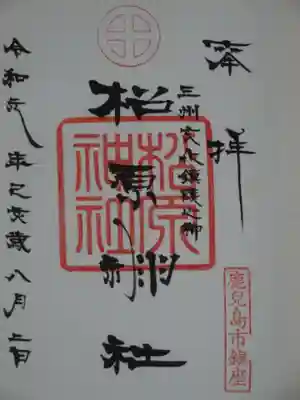 奉拝
三州文化鎮護之
鹿兒島市鎮座
松原神社
松原神社
令和元年己亥歳八月日